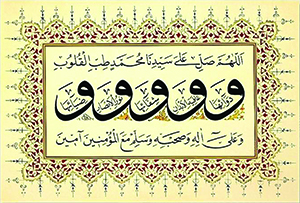 اللهم صل على سيدنا محمد طب القلوب
ودوائها وعافية الابدان وشفائها ونور الابصار وضيائها
وعلى آله وصحبه وسلم مع المؤمنين آمين